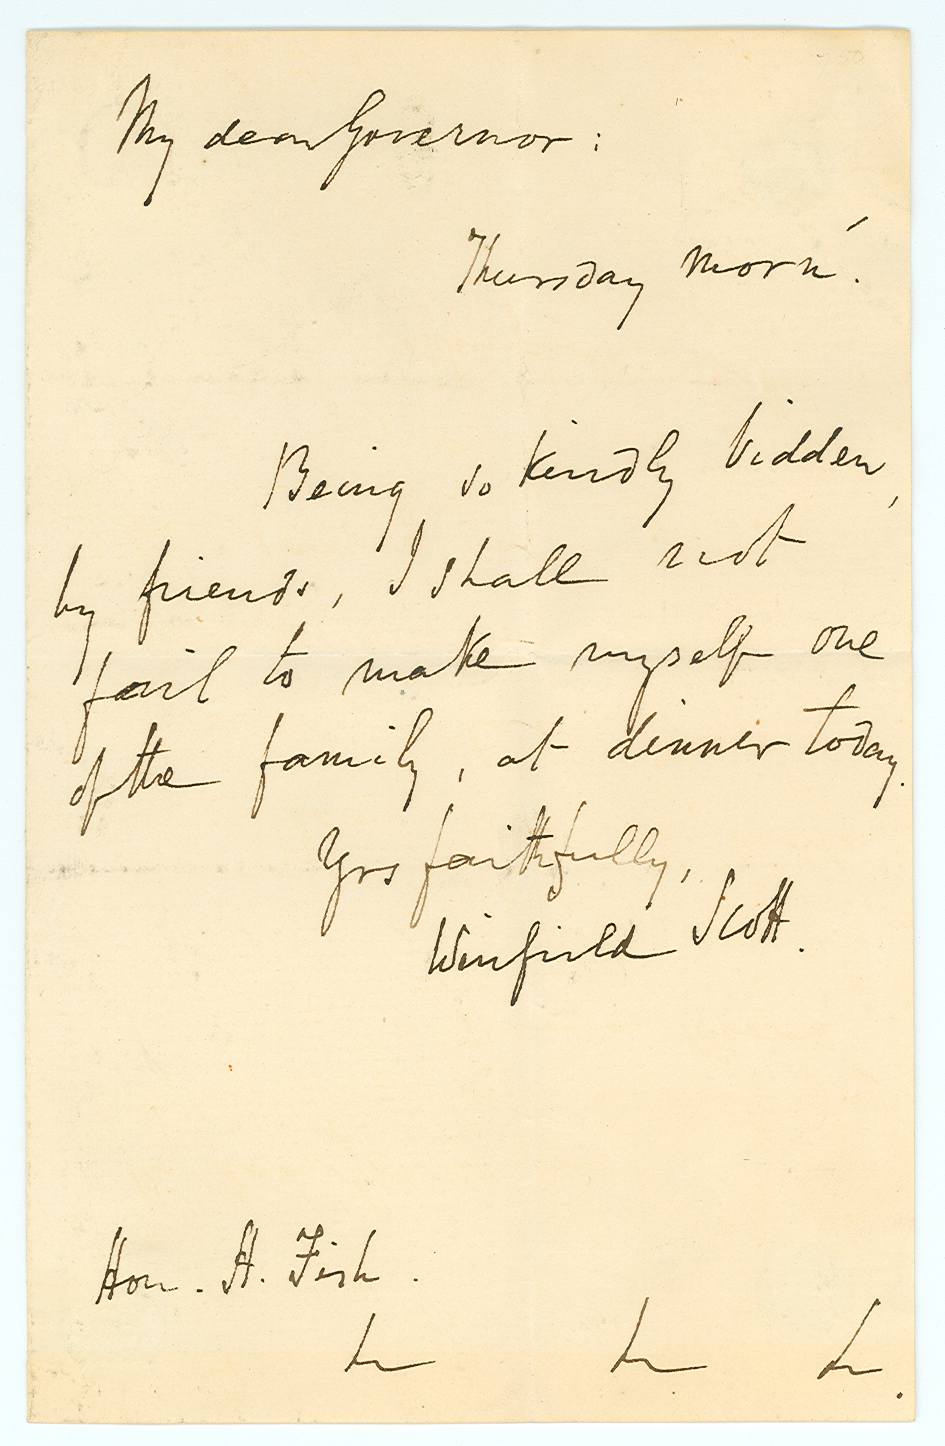 My dear Governor:
Thursday morn'.
Being so kindly bidden,
by friends, I shall not
fail to make myself one
of the family, at dinner today.
Yrs faithfully,
Winfield Scott.
Hon. H. Fish.